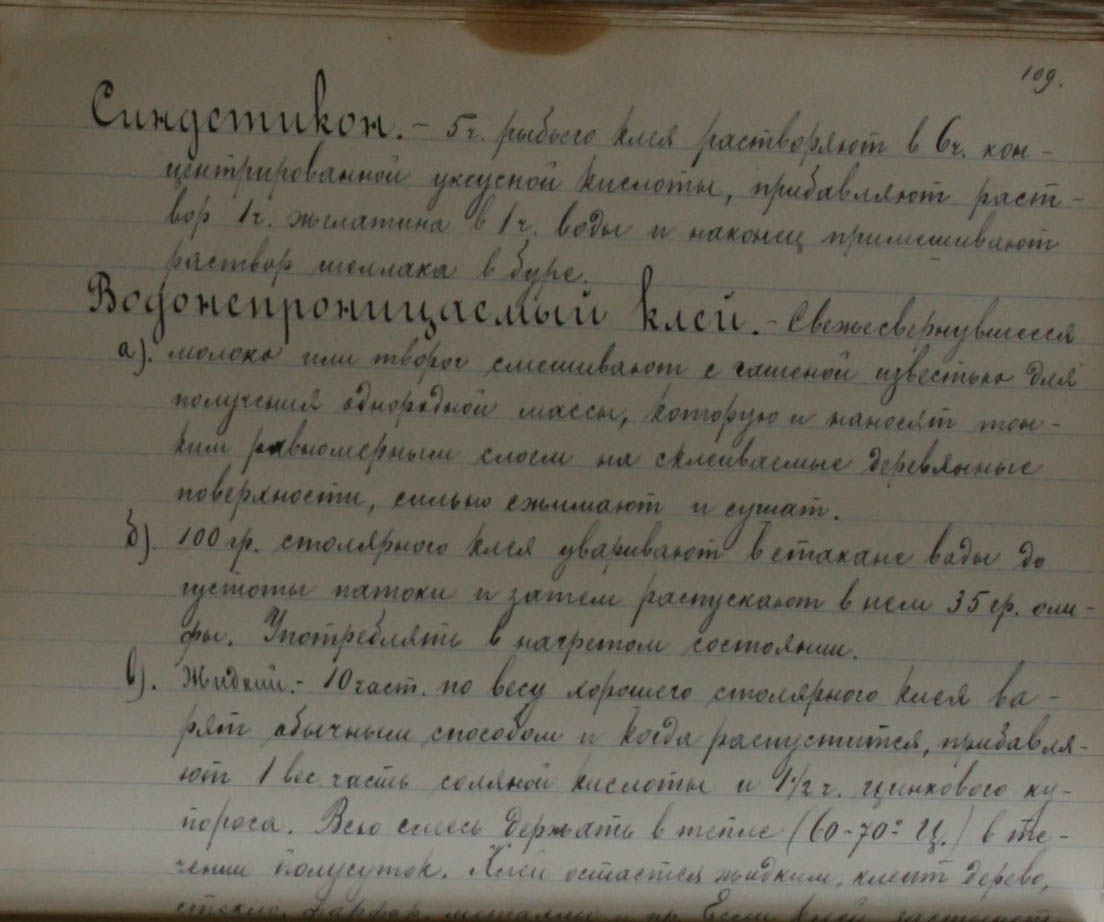 109.
Синдетикон. – 5 ч. рыбьего клея растворяют в 6 ч. кон-
центрированной уксусной кислоты, прибавляют раст-
вор 1 ч. желатина в 1 ч. воды и наконец примешивают
раствор шеллака в буре.
Водонепроницаемый клей. – Свежесвернувшееся
а). молоко или творог смешивают с гашеной известью для
получения однородной массы, которую и наносят тон-
ким равномерным слоем на склеиваемые деревянные
поверхности, сильно сжимают и сушат.
б). 100 гр. столярного клея уваривают в стакане воды до
густоты патоки и затем распускают в нем 35 гр. оли-
фы. Употреблять в нагретом состоянии.
в). Жидкий. – 10 част. по весу хорошего столярного клея ва-
рят обычным способом и когда распустится, прибавля-
ют 1 вес. часть соляной кислоты и 1½ ч. цинкового ку-
пороса. Всю смесь держать в тепле (60-70° Ц.) в те-
чении полусуток. Клей остается жидким, клеит дерево,
стекло, фарфор, металлы и пр. Если клей